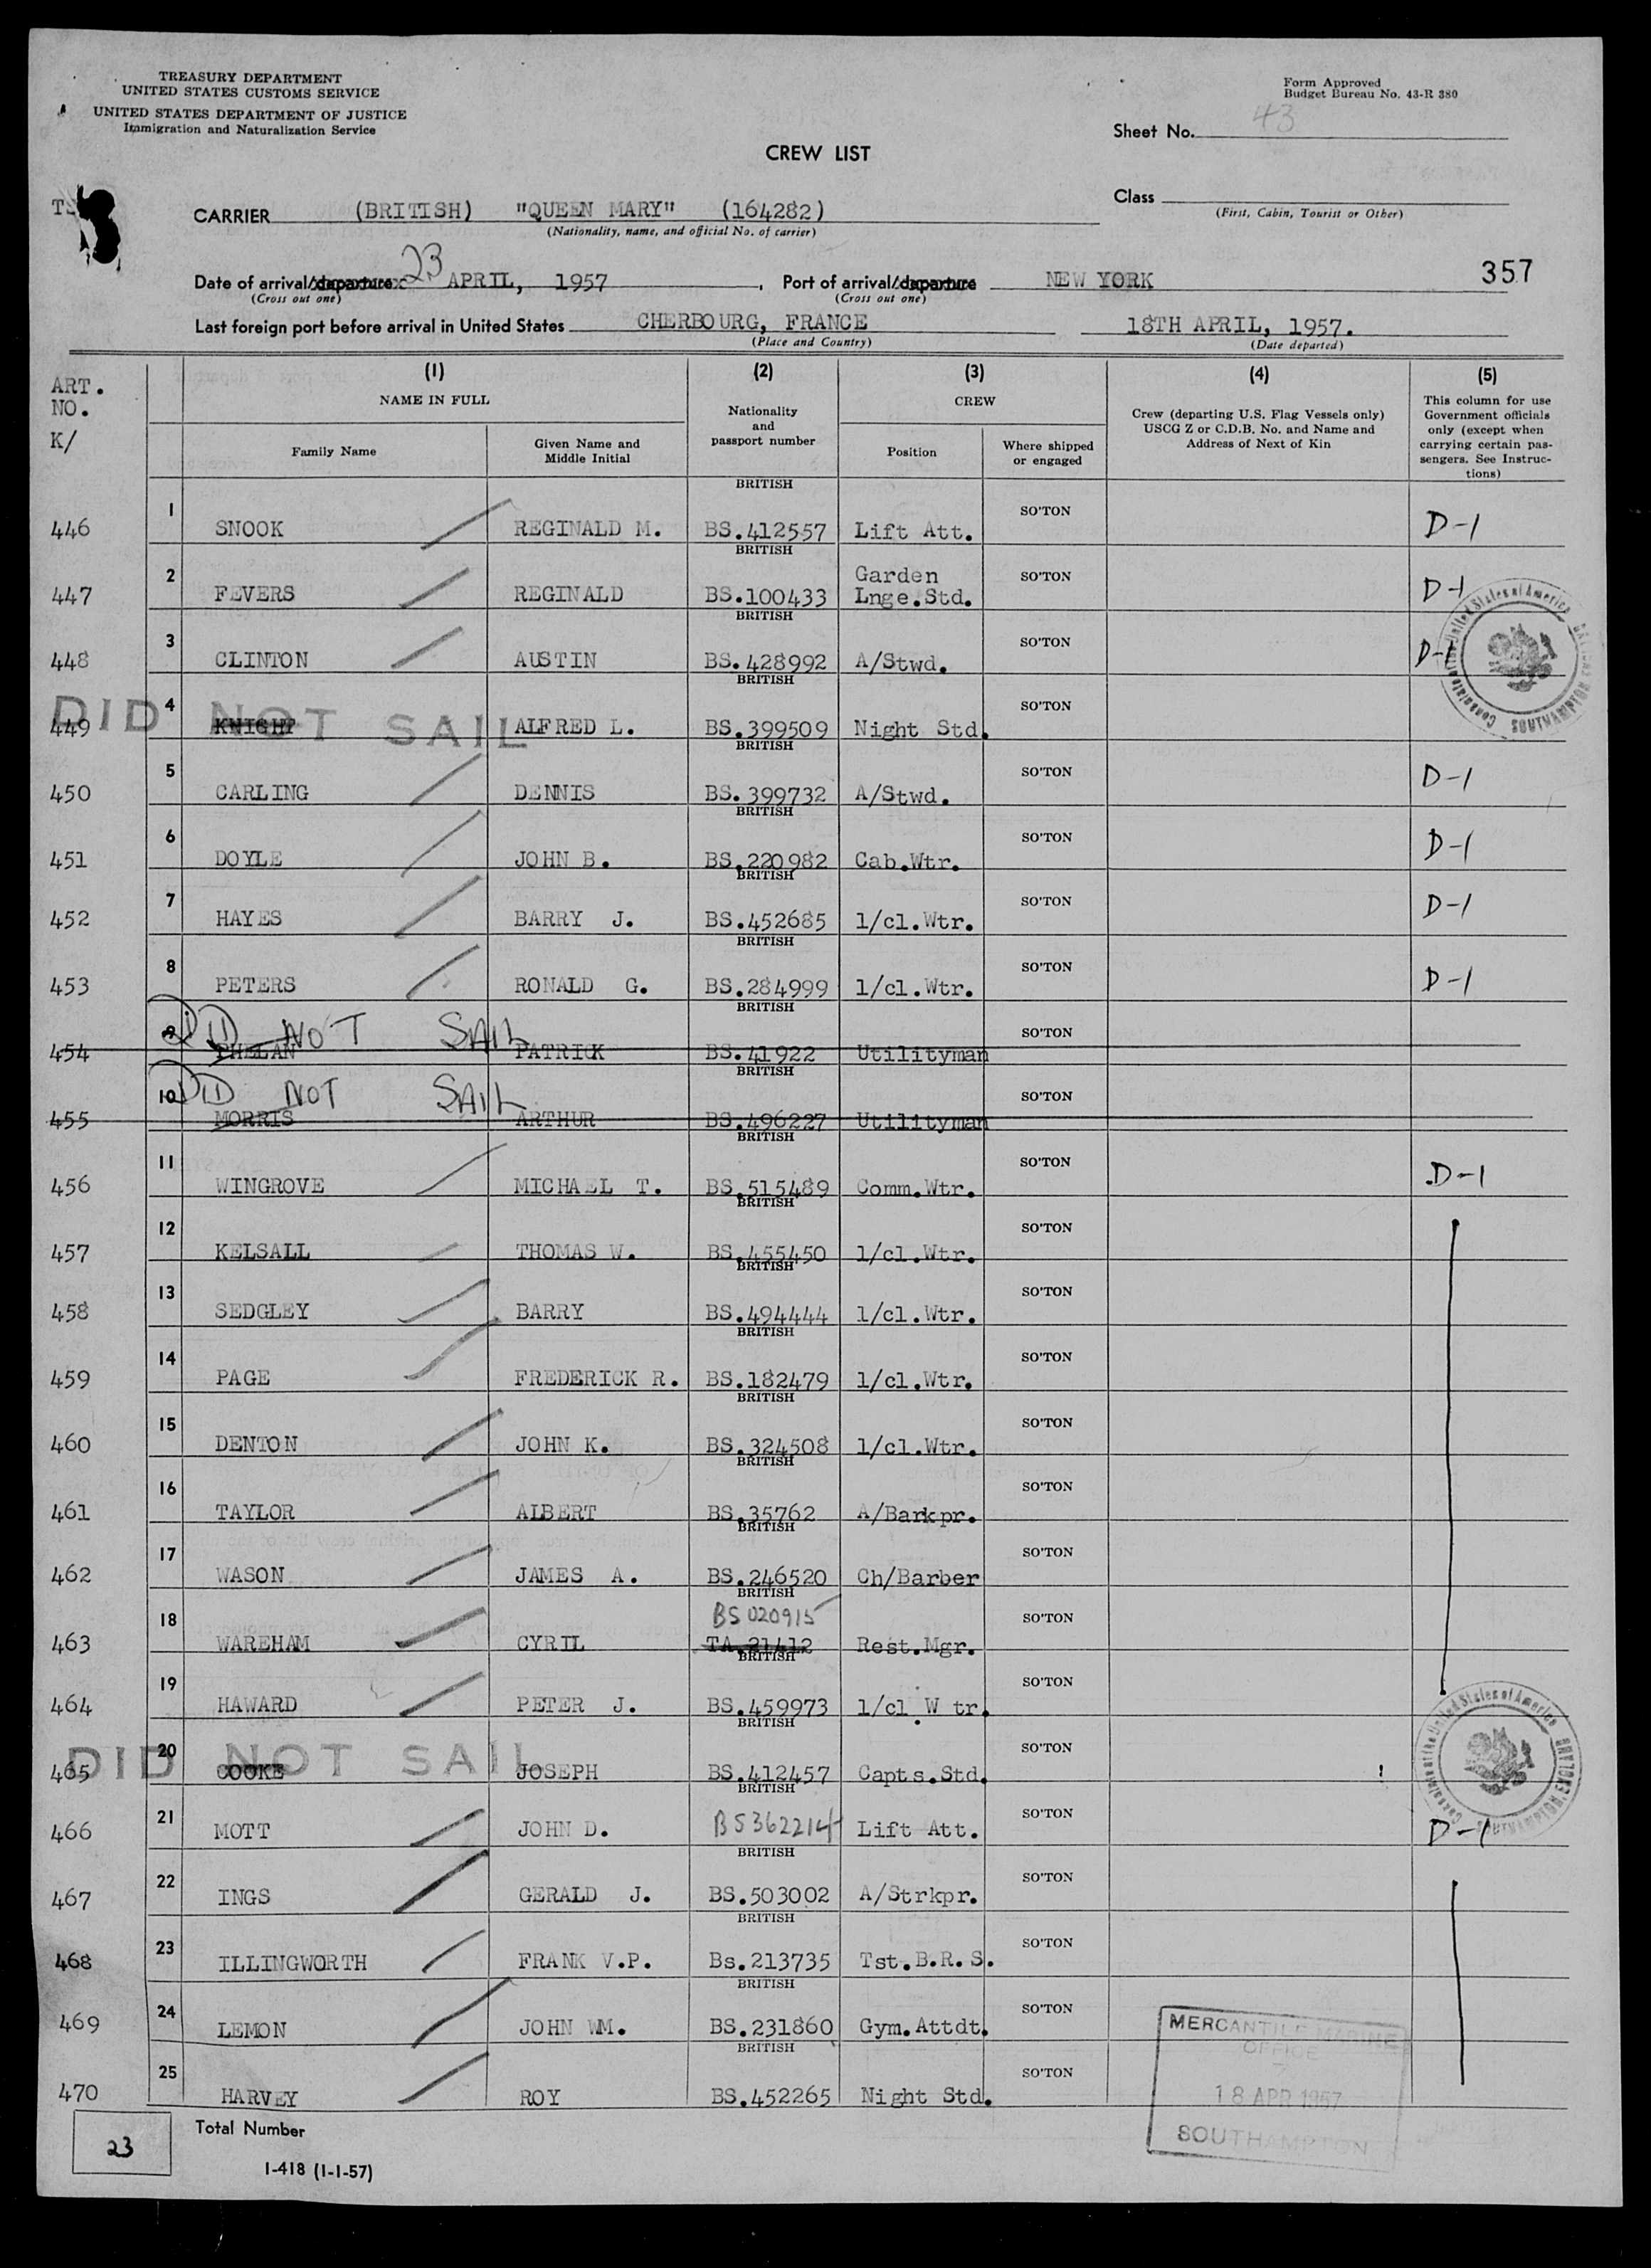 TREASURY DEPARTMENT
UNITED STATES CUSTOMS SERVICE
UNITED STATES DEPARTMENT OF JUSTICE
Immigration and Naturalization Service
Form Approved
Budget Bureau No. 43-R 380
Sheet No. 43
CREW LIST
Class
(First, Cabin, Tourist or Other)
CARRIER (BRITISH) "QUEEN MARY" (164282)
(Nationality, name, and official No. of carrier)
Date of arrival/departure 23 APRIL, 1957, Port of arrival/departure NEW YORK 357
(Cross out one) (Cross out one)
Last foreign port before arrival in United States CHERBOURG, FRANCE 18TH APRIL, 1957.
(Place and Country) (Date departed)
ART. NO. K/
(1) NAME IN FULL
Family Name
Given Name and Middle Initial
(2) Nationality and passport number
(3) CREW
Position
Where shipped or engaged
(4) Crew (departing U.S. Flag Vessels only) USCG Z or C.D.B. No. and Name and Address of Next of Kin
(5) This column for use Government officials only (except when carrying certain passengers. See Instructions)
446 1 SNOOK REGINALD M. BRITISH BS.412557 Lift Att. SO'TON D-1
447 2 FEVERS REGINALD BRITISH BS.100433 Garden Lnge.Std. SO'TON D-1
448 3 CLINTON AUSTIN BRITISH BS.428992 A/Stwd. SO'TON D-1
449 4 KNIGHT ALFRED L. BRITISH BS.399509 Night Std. SO'TON
DID NOT SAIL
450 5 CARLING DENNIS BRITISH BS.399732 A/Stwd. SO'TON D-1
451 6 DOYLE JOHN B. BRITISH BS.220982 Cab.Wtr. SO'TON D-1
452 7 HAYES BARRY J. BRITISH BS.452685 1/cl.Wtr. SO'TON D-1
453 8 PETERS RONALD G. BRITISH BS.284999 1/cl.Wtr. SO'TON D-1
DID NOT SAIL
454 9 PHELAN PATRICK BRITISH BS.41922 Utilityman SO'TON
DID NOT SAIL
455 10 MORRIS ARTHUR BRITISH BS.496227 Utilityman SO'TON
456 11 WINGROVE MICHAEL T. BRITISH BS.515489 Comm.Wtr. SO'TON D-1
457 12 KELSALL THOMAS W. BRITISH BS.455450 1/cl.Wtr. SO'TON
458 13 SEDGLEY BARRY BRITISH BS.494444 1/cl.Wtr. SO'TON
459 14 PAGE FREDERICK R. BRITISH BS.182479 1/cl.Wtr. SO'TON
460 15 DENTON JOHN K. BRITISH BS.324508 1/cl.Wtr. SO'TON
461 16 TAYLOR ALBERT BRITISH BS.35762 A/Barkpr. SO'TON
462 17 WASON JAMES A. BRITISH BS.246520 Ch/Barber SO'TON
463 18 WAREHAM CYRIL BRITISH BS 020915 TA.21412 Rest.Mgr. SO'TON
464 19 HAWARD PETER J. BRITISH BS.459973 1/cl.W tr. SO'TON
465 20 COOKE JOSEPH BRITISH BS.412457 Capts.Std. SO'TON
DID NOT SAIL
466 21 MOTT JOHN D. BRITISH BS362214 Lift Att. SO'TON D-1
467 22 INGS GERALD J. BRITISH BS.503002 A/Strkpr. SO'TON
468 23 ILLINGWORTH FRANK V.P. BRITISH Bs.213735 Tst.B.R.S. SO'TON
469 24 LEMON JOHN WM. BRITISH BS.231860 Gym.Attdt. SO'TON
470 25 HARVEY ROY BRITISH BS.452265 Night Std. SO'TON
MERCANTILE MARINE
OFFICE
18 APR 1957
SOUTHAMPTON
23 Total Number
I-418 (1-1-57)